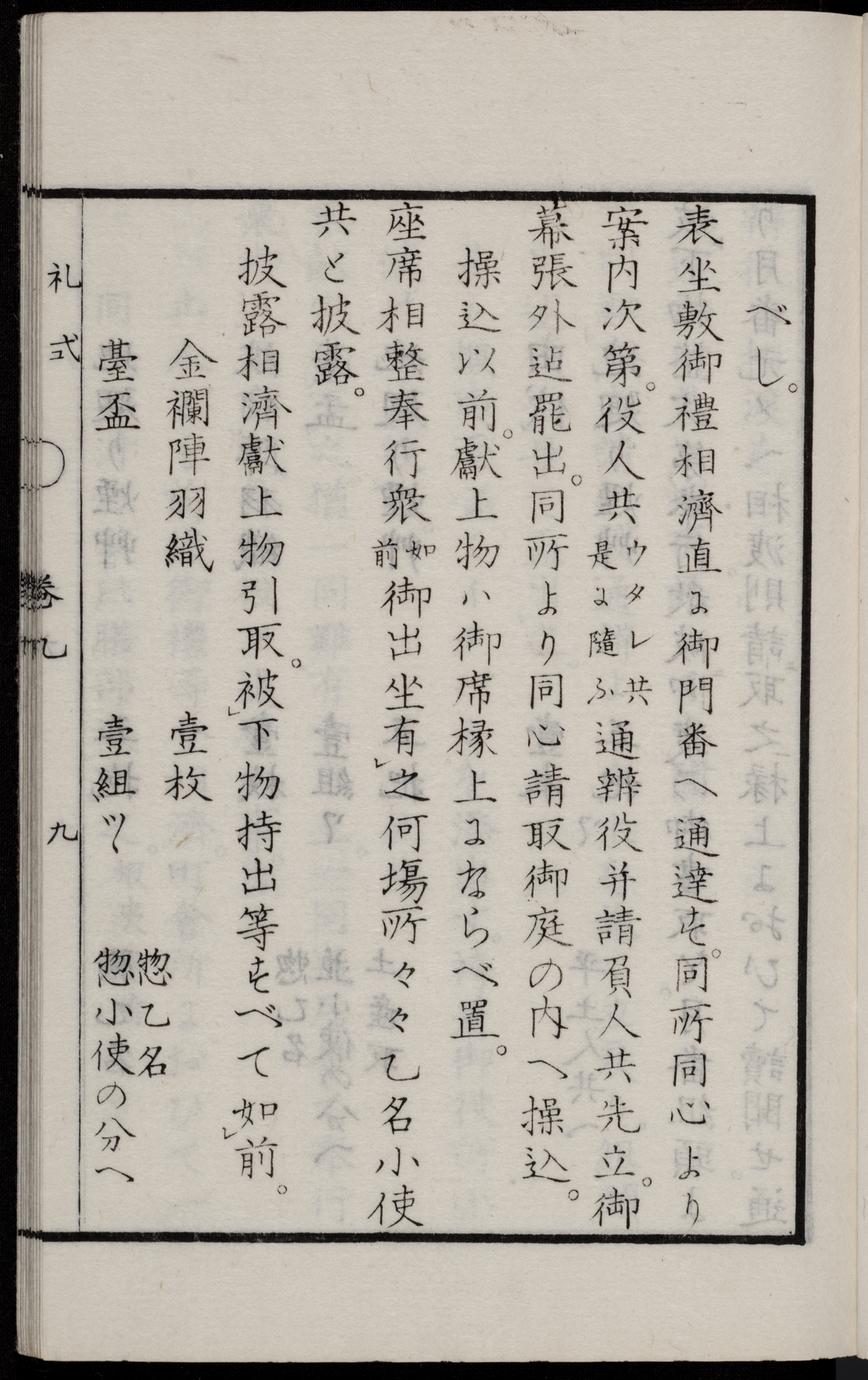 べし。
表坐敷御禮相濟直ニ御門番へ通達す。同所同心より
案内次第。役人共ウタレ共是ニ隨ふ通辨役并請負人共先立。御
幕張外迠罷出。同所より同心請取御庭の内へ操込。
操込以前。獻上物ハ御席椽上ニならべ置。
座席相整奉行衆如前御出坐有之何塲所々々乙名小使
共と披露。
披露相濟獻上物引取。被下物持出等すべて如前。
金襴陣羽織 壹枚
臺盃 壹組ツヽ 惣乙名
惣小使の分へ
礼式 卷乙 九